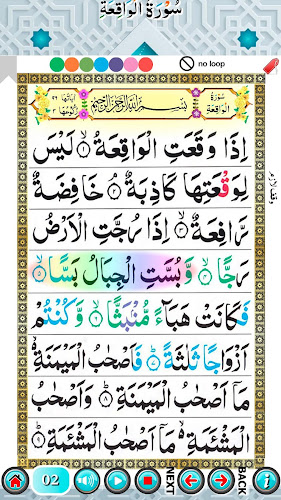 سُوْرَةُ الْوَاقِعَةِ
no loop
سُوْرَةُ الْوَاقِعَةِ
بِسْمِ اللهِ الرَّحْمٰنِ الرَّحِيْمِ
اِذَا وَقَعَتِ الْوَاقِعَةُ ۙ‏﴿۱﴾ لَيْسَ
لِوَقْعَتِهَا كَاذِبَةٌ ۘ‏﴿۲﴾ خَافِضَةٌ
رَّافِعَةٌ ۙ‏﴿۳﴾ اِذَا رُجَّتِ الْاَرْضُ
رَجًّا ۙ‏﴿۴﴾ وَّبُسَّتِ الْجِبَالُ بَسًّا ۙ‏﴿۵﴾
فَكَانَتْ هَبَآءً مُّنْۢبَثًّا ۙ‏﴿۶﴾ وَّكُنْتُمْ
اَزْوَاجًا ثَلٰثَةً ؕ‏﴿۷﴾ فَاَصْحٰبُ الْمَيْمَنَةِ ۙ
مَاۤ اَصْحٰبُ الْمَيْمَنَةِ ؕ‏﴿۸﴾ وَاَصْحٰبُ
الْمَشْئَمَةِ ۙ مَاۤ اَصْحٰبُ الْمَشْئَمَةِ ؕ‏﴿۹﴾
02
NEXT
BACK